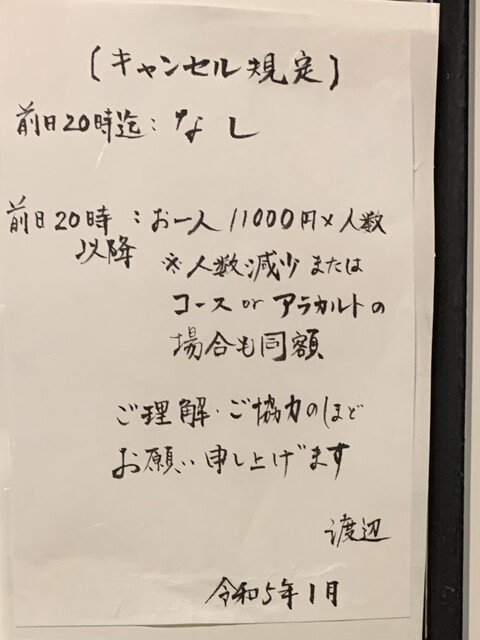 (キャンセル規定)
前日20時迄:なし
前日20時:お一人11000円×人数
以降 ※人数減少または
コース or アラカルトの
場合も同額
ご理解・ご協力のほど
お願い申し上げます
渡辺
令和5年1月